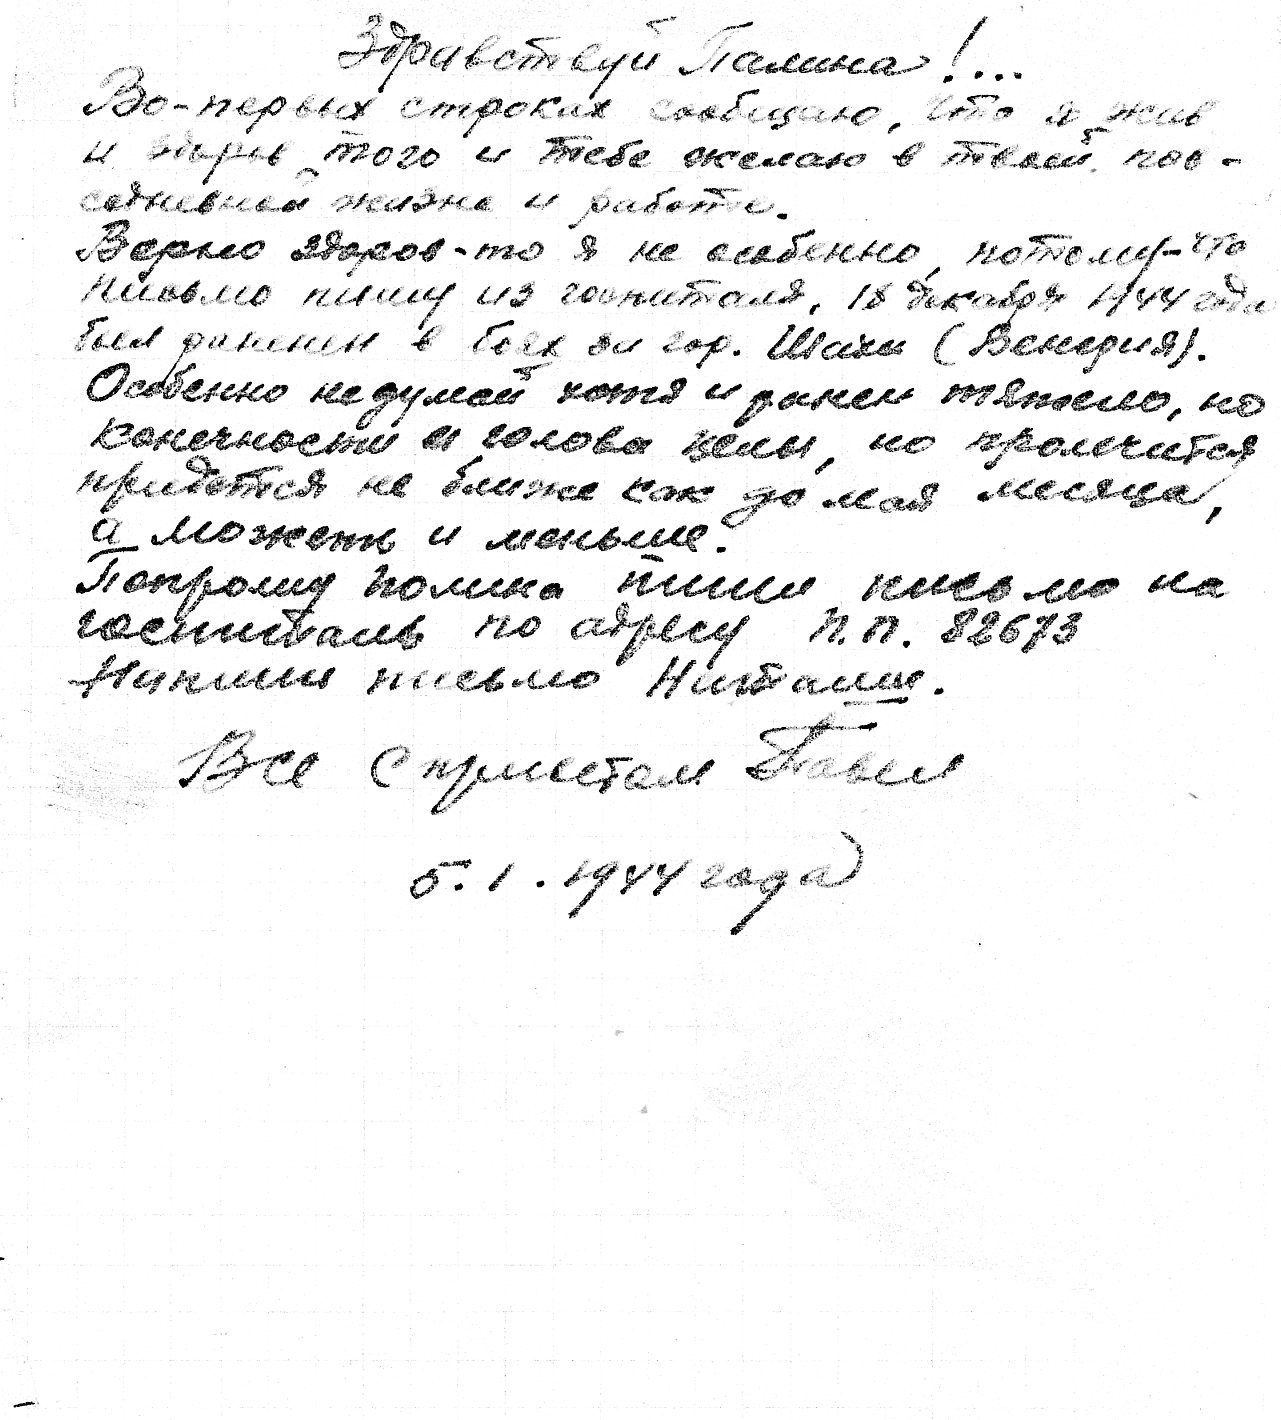 Здравствуй Палина!...
Во-первых строках сообщаю, что я жив
и здоров того и тебе желаю в твоей пов-
седневной жизне и работе.
Верно здоров-то я не особенно, потому-что
письмо пишу из госпиталя, 18 декабря 1944 года
был ранен в боях за гор. Шахи (Венедия).
Особенно не думай хотя и ранен тяжело, но
конечности и голова целы, но пролечится
придется не ближе как до мая месяца,
а может и меньше.
Попрошу Полина пиши письмо на
госпиталь по адресу П.П. 82673
Напиши письмо Наталии.
Все с приветом Павел
5.1.1944 года